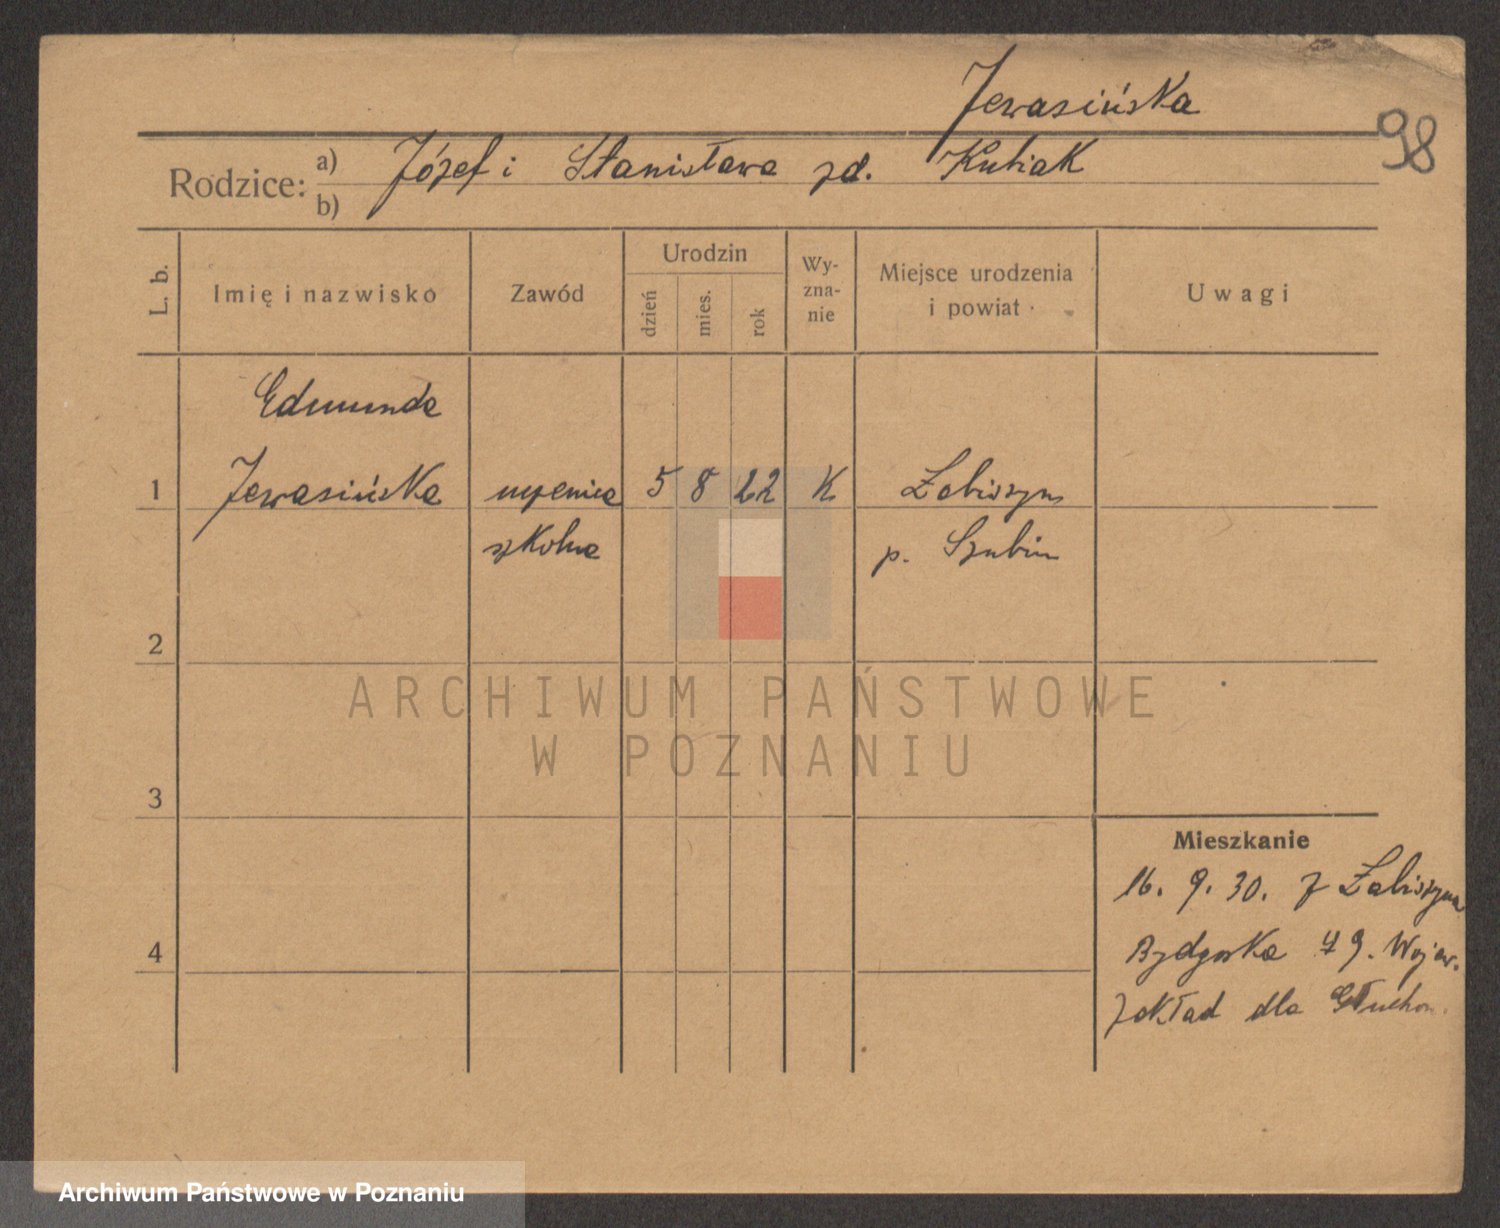 Jewasińska
98
Rodzice: a) Józef i Stanisława zd. Kubiak
b)
L. b. Imię i nazwisko Zawód Urodzin dzień mies. rok Wy-zna-nie Miejsce urodzenia i powiat Uwagi
Edmunda
1 Jewasińska uczenica 5 8 22 K Łabiszyn
szkolna p. Szubin
2
ARCHIWUM PAŃSTWOWE
W POZNANIU
3
Mieszkanie
16. 9. 30. z Łabiszyna
4 Bydgoska 49. Wojew.
Zakład dla Głuchon.
Archiwum Państwowe w Poznaniu